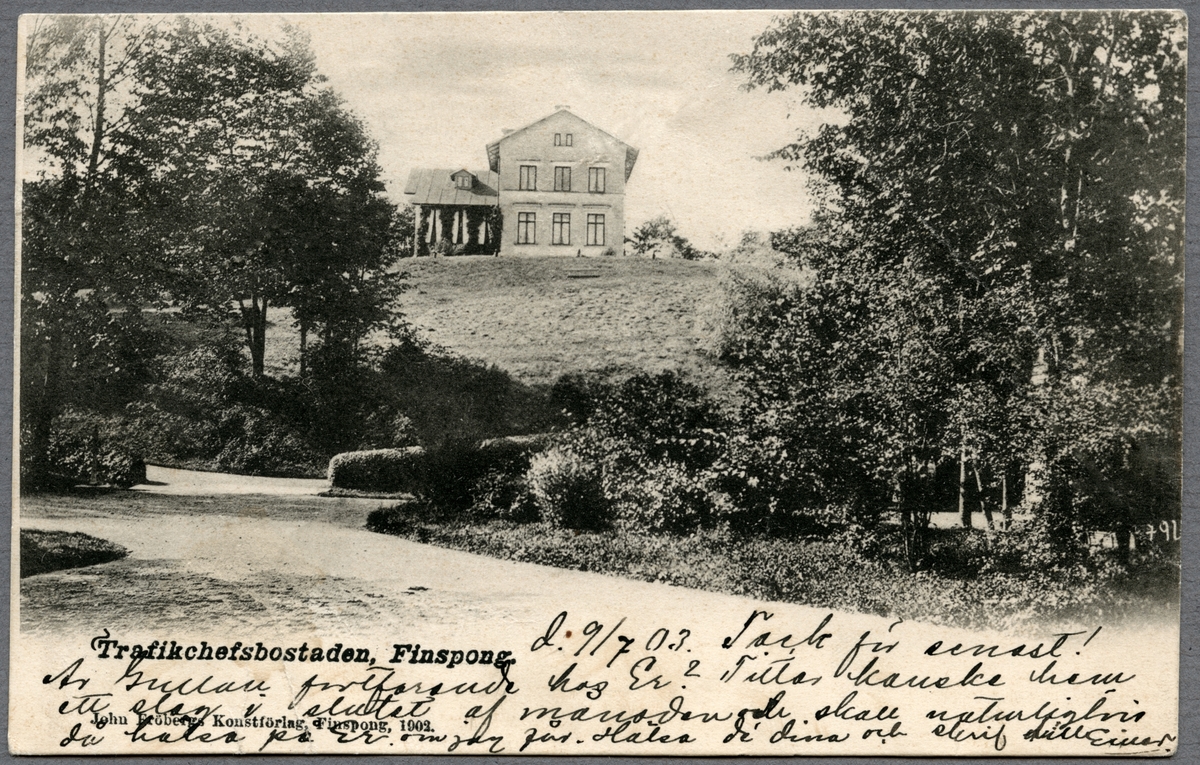 791
d. 9/7 03. Tack för senast!
Trafikchefsbostaden, Finspong.
Är Gullan fortfarande hos Er? Tittar kanske hem
ett slag i slutet af månaden och skall naturligtvis
John Fröbergs Konstförlag, Finspong, 1902.
då hälsa på Er om jag får. Hälsa de dina och skrif till Einar.